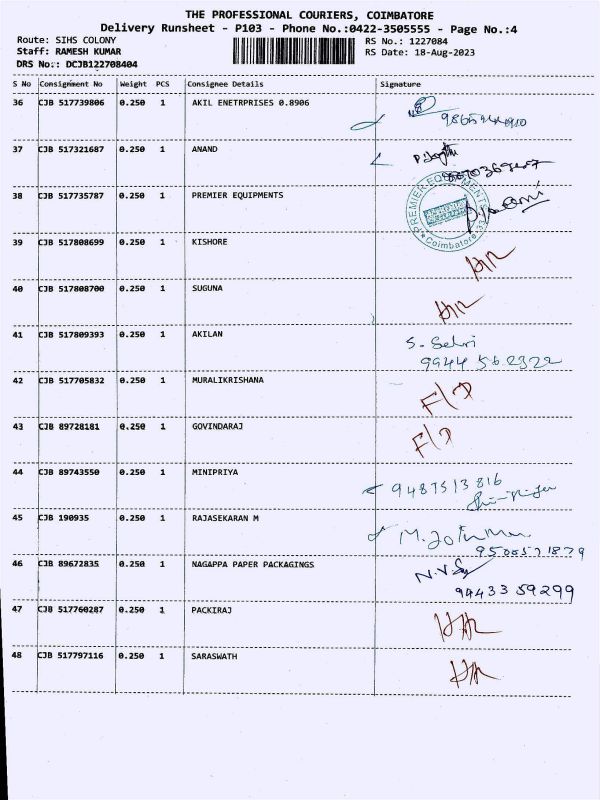 THE PROFESSIONAL COURIERS, COIMBATORE
Delivery Runsheet - P103 - Phone No.:0422-3505555 - Page No.:4
Route: SIHS COLONY
RS No.: 1227084
Staff: RAMESH KUMAR
RS Date: 18-Aug-2023
DRS No.: DCJB122708404
S No Consignment No Weight PCS Consignee Details Signature
36 CJB 517739806 0.250 1 AKIL ENETRPRISES 0.8906
37 CJB 517321687 0.250 1 ANAND
38 CJB 517735787 0.250 1 PREMIER EQUIPMENTS
PREMIER EQUIPMENTS
Coimbatore-33
39 CJB 517808699 0.250 1 KISHORE
40 CJB 517808700 0.250 1 SUGUNA
41 CJB 517809393 0.250 1 AKILAN S. Selvi
9944 562322
42 CJB 517705832 0.250 1 MURALIKRISHANA F/D
43 CJB 89728181 0.250 1 GOVINDARAJ F/D
44 CJB 89743550 0.250 1 MINIPRIYA 9487513816
45 CJB 190935 0.250 1 RAJASEKARAN M
9500571879
46 CJB 89672835 0.250 1 NAGAPPA PAPER PACKAGINGS
94433 59299
47 CJB 517760287 0.250 1 PACKIRAJ
48 CJB 517797116 0.250 1 SARASWATH